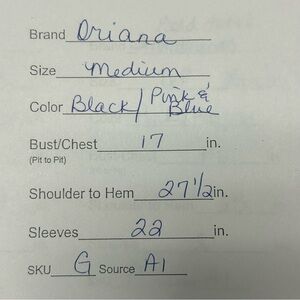 Brand Oriana
Size Medium
Color Black/Pink & Blue
Bust/Chest 17 in.
(Pit to Pit)
Shoulder to Hem 27 1/2 in.
Sleeves 22 in.
SKU G Source A1